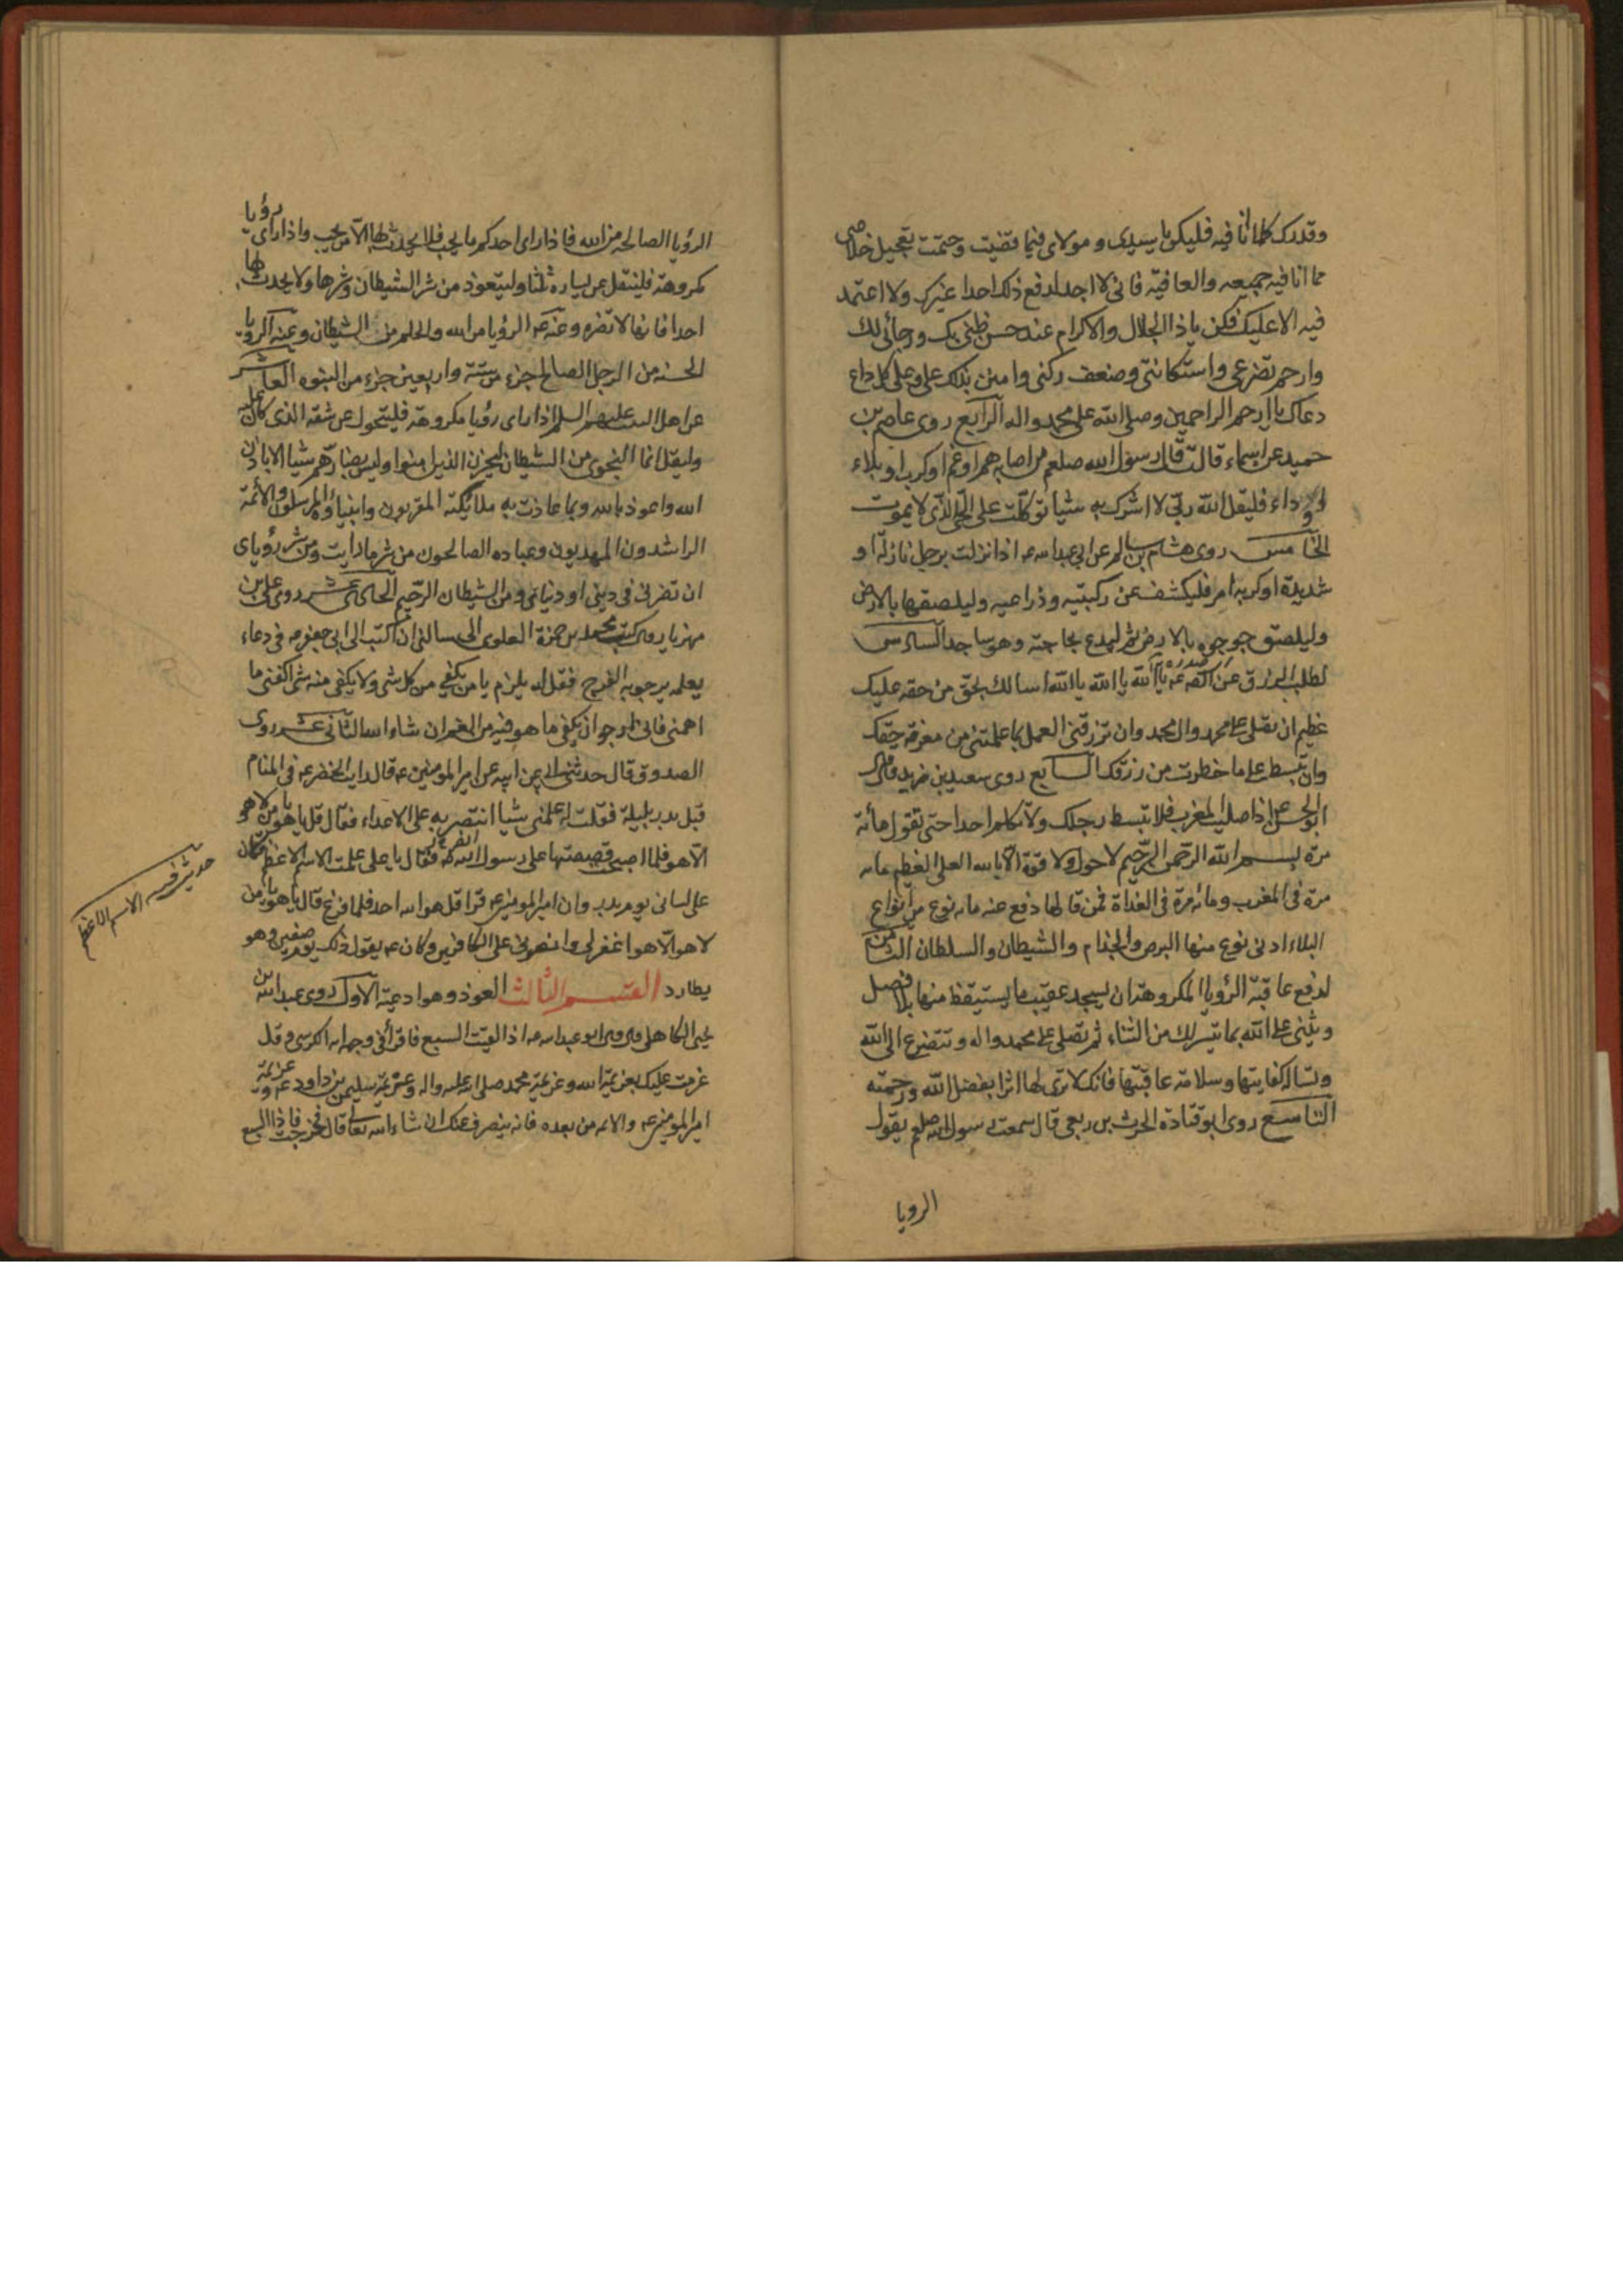 وقدرك كلما انا فيه فليكن يا سيدى و مولاى فيما قضيت وحتمت تعجيل خلاصى
مما انا فيه جميعه والعافية فانى لا اجد لدفع ذلك احدا غيرك ولا اعتمد
فيه الا عليك فكن ياذا الجلال والاكرام عند حسن ظنى بك ورجائى لك
وارحم تضرعى واستكانتى وضعف ركنى وامنن بذلك على وعلى كل داع
دعاك يا ارحم الراحمين وصلى الله على محمد واله الرابع روى عاصم بن
حميد عن اسماء قالت قال رسول الله صلعم من اصابه هم او غم او كرب او بلاء
او لاواء فليقل الله ربى لا اشرك به شيا توكلت على الحى الذى لا يموت
الخامس روى هشام بن سالم عن ابى عبد الله عه اذا نزلت برجل نازلة او
شديدة او كربه امر فليكشف عن ركبتيه وذراعيه وليلصقها بالارض
وليلصق جوجوه بالارض ثم ليدع بحاجته وهو ساجد السادس
صدره
لطلب الرزق عن عه يا الله يا الله يا الله اسالك بحق من حقه عليك
عظيم ان تصلى على محمد وال محمد وان ترزقنى العمل بما علمتنى من معرفة حقك
وان تبسط على ما حظرت من رزقك السابع روى سعيد بن زيد قال
ابو الحسن عه اذا صليت المغرب فلا تبسط رجلك ولا تكلم احدا حتى تقول مائة
مرة بسم الله الرحمن الرحيم لا حول ولا قوة الا بالله العلى العظيم مائه
مرة فى المغرب ومائه مرة فى الغداة فمن قالها دفع عنه مائه نوع من انواع
البلاء ادنى نوع منها البرص والجذام والشيطان والسلطان الثامن
لدفع عاقبة الرؤيا المكروهة ان يسجد عقيب ما يستيقظ منها بلا فصل
ويثنى على الله بما تيسر لك من الثناء ثم تصلى على محمد واله وتتضرع الى الله
وتساله كفايتها وسلامة عاقبتها فانك لا ترى لها اثرا بفضل الله ورحمته
التاسع روى ابو قتادة الحرث بن ربعى قال سمعت رسول الله صلعم يقول
الرويا
الرؤيا الصالحه من الله فاذا راى احدكم ما يحب فلا يحدث بها الا من يحب واذا راى رؤيا
مكروهة فليتفل عن يساره ثلثا وليتعوذ من شر الشيطان وشرها ولا يحدث بها
احدا فانها لا تضره وعنه عه الرؤيا من الله والحلم من الشيطان وعنه الرؤيا
الحسنه من الرجل الصالح جزء من ستة واربعين جزء من النبوه العاشر
عن اهل البيت عليهم السلم اذا راى رؤيا مكروهة فليتحول عن شقه الذى كان عليه
وليقل انما النجوى من الشيطان ليحزن الذين امنوا وليس بضارهم شيا الا باذن
الله واعوذ بالله وبما عاذت به ملائكته المقربون وانبياؤه المرسلون والائمة
الراشدون المهديون وعباده الصالحون من شر ما رايت ومن شر رؤياى
ان تضرنى فى دينى او دنياى ومن الشيطان الرجيم الحادى عشر روى على بن
مهزيار قال كتب محمد بن حمزة العلوى الى يسالنى ان اكتب الى ابى جعفر عه فى دعاء
يعلمه يرجو به الفرج فقال له يلزم يا من يكفى من كل شى ولا يكفى منه شى اكفنى ما
اهمنى فانى ارجو ان يكفى ما هو فيه من الغم ان شاء الله الثانى عشر روى
الصدوق قال حدثنى ابى عن ابيه عن امير المومنين عه قال رايت الخضر عه فى المنام
قبل بدر بليلة فقلت له علمنى شيا انتصر به على الاعداء فقال قل يا هو يا من لا هو
الا هو فلما اصبحت قصصتها على رسول الله فقال يا على علمت الاسم الاعظم فكان
على لسانى يوم بدر وان امير المومنين عه قرا قل هو الله احد فلما فرغ قال يا هو يا من
لا هو الا هو اغفر لى وانصرنى على الكافرين وكان عه يقول ذلك يوم صفين وهو
يطارد القسم الثالث العوذ وهو ادعية الاول روى عبد الله بن
يحيى الكاهلى قال قال ابو عبد الله عه اذا لقيت السبع فاقرأ فى وجهه اية الكرسى وقل
عزمت عليك بعزيمة الله وعزيمة محمد صلى الله عليه واله وعزيمة سليمن بن داود عه وعزيمة
امير المومنين عه والائمه من بعده فانه ينصرف عنك ان شاء الله تعالى قال فخرجت فاذا السبع
حديث فيه الاسم الاعظم